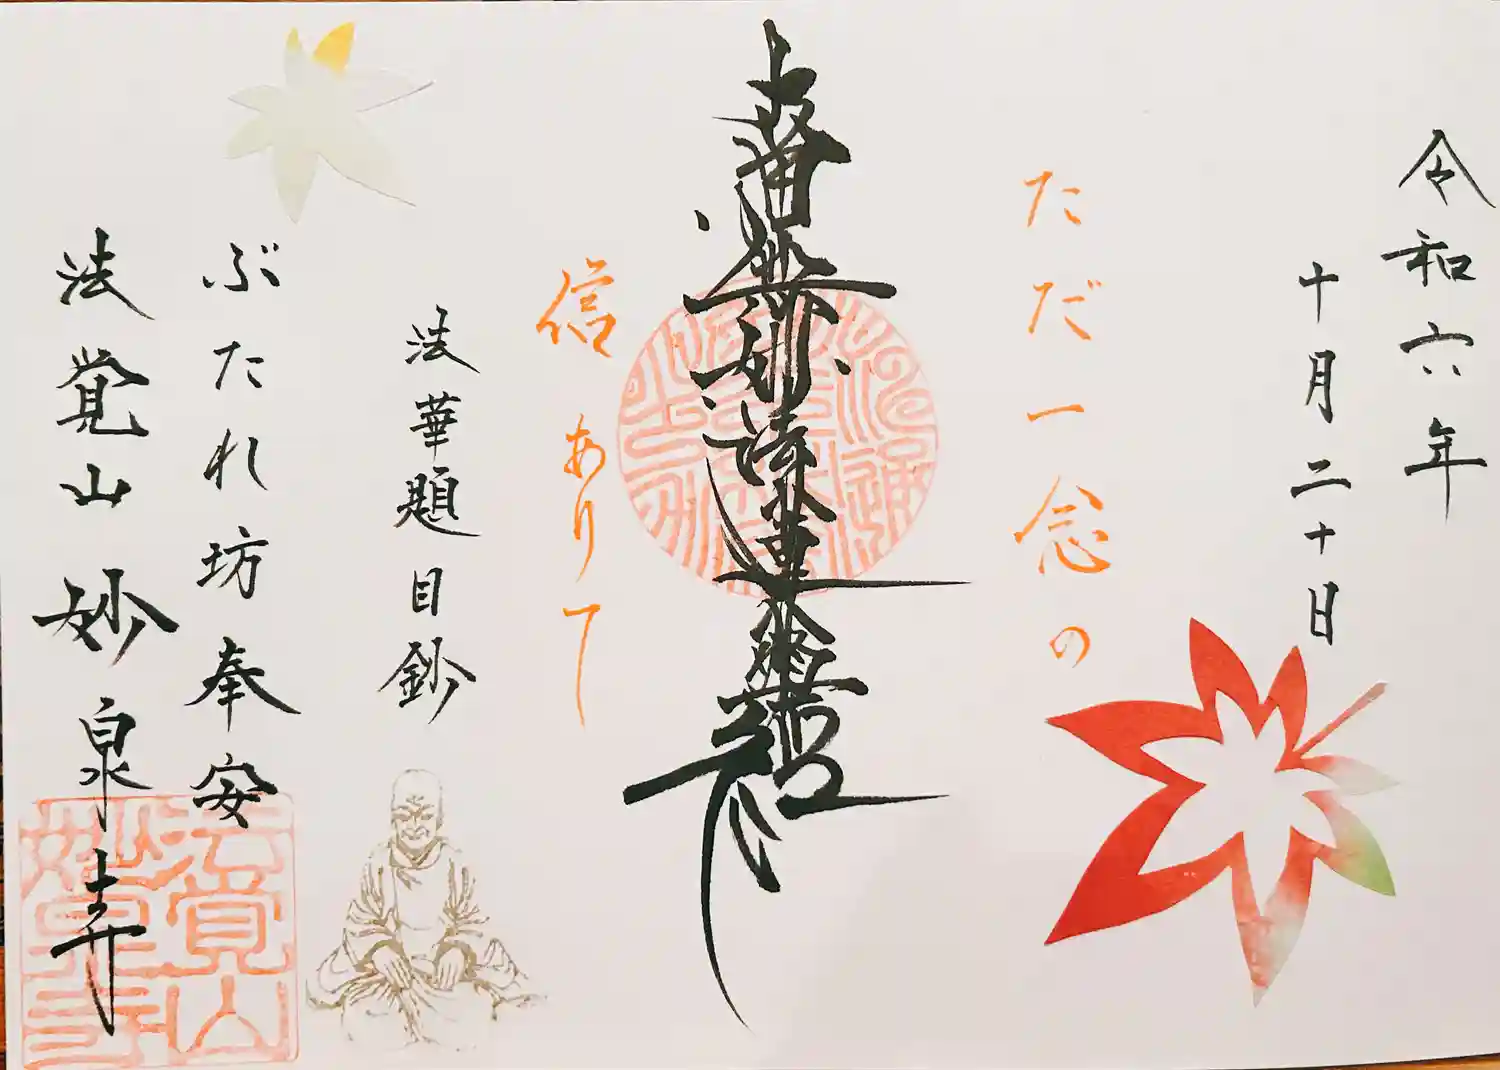 令和六年
十月二十日
ただ一念の
南無妙法蓮華経
信ありて
法華題目鈔
ぶたれ坊奉安
法覚山妙泉寺
法覚山
妙泉寺